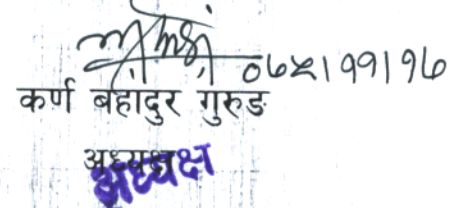 ०७५।११।१७
कर्ण बहादुर गुरुङ
अध्यक्ष
अध्यक्ष